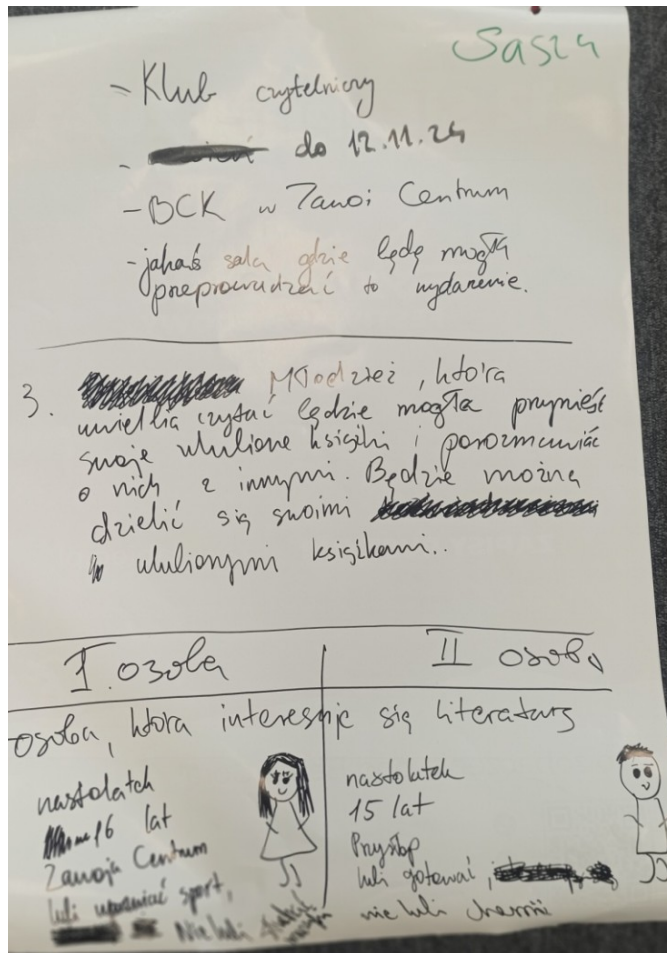 Sasza
- Klub czytelniczy
- do 12.11.24
- BCK w Zawoi Centrum
- jakaś sala gdzie będę mogła
przeprowadzać to wydarzenie.
3. Młodzież, która
uwielbia czytać będzie mogła przynieść
swoje ulubione książki i porozmawiać
o nich z innymi. Będzie można
dzielić się swoimi
ulubionymi książkami..
I osoba
II osoba
osoba, która interesuje się literaturą
nastolatek
16 lat
Zawoja Centrum
lubi uprawiać sport,
Nie lubi
nastolatek
15 lat
Przysłop
lubi gotować,
nie lubi chemii